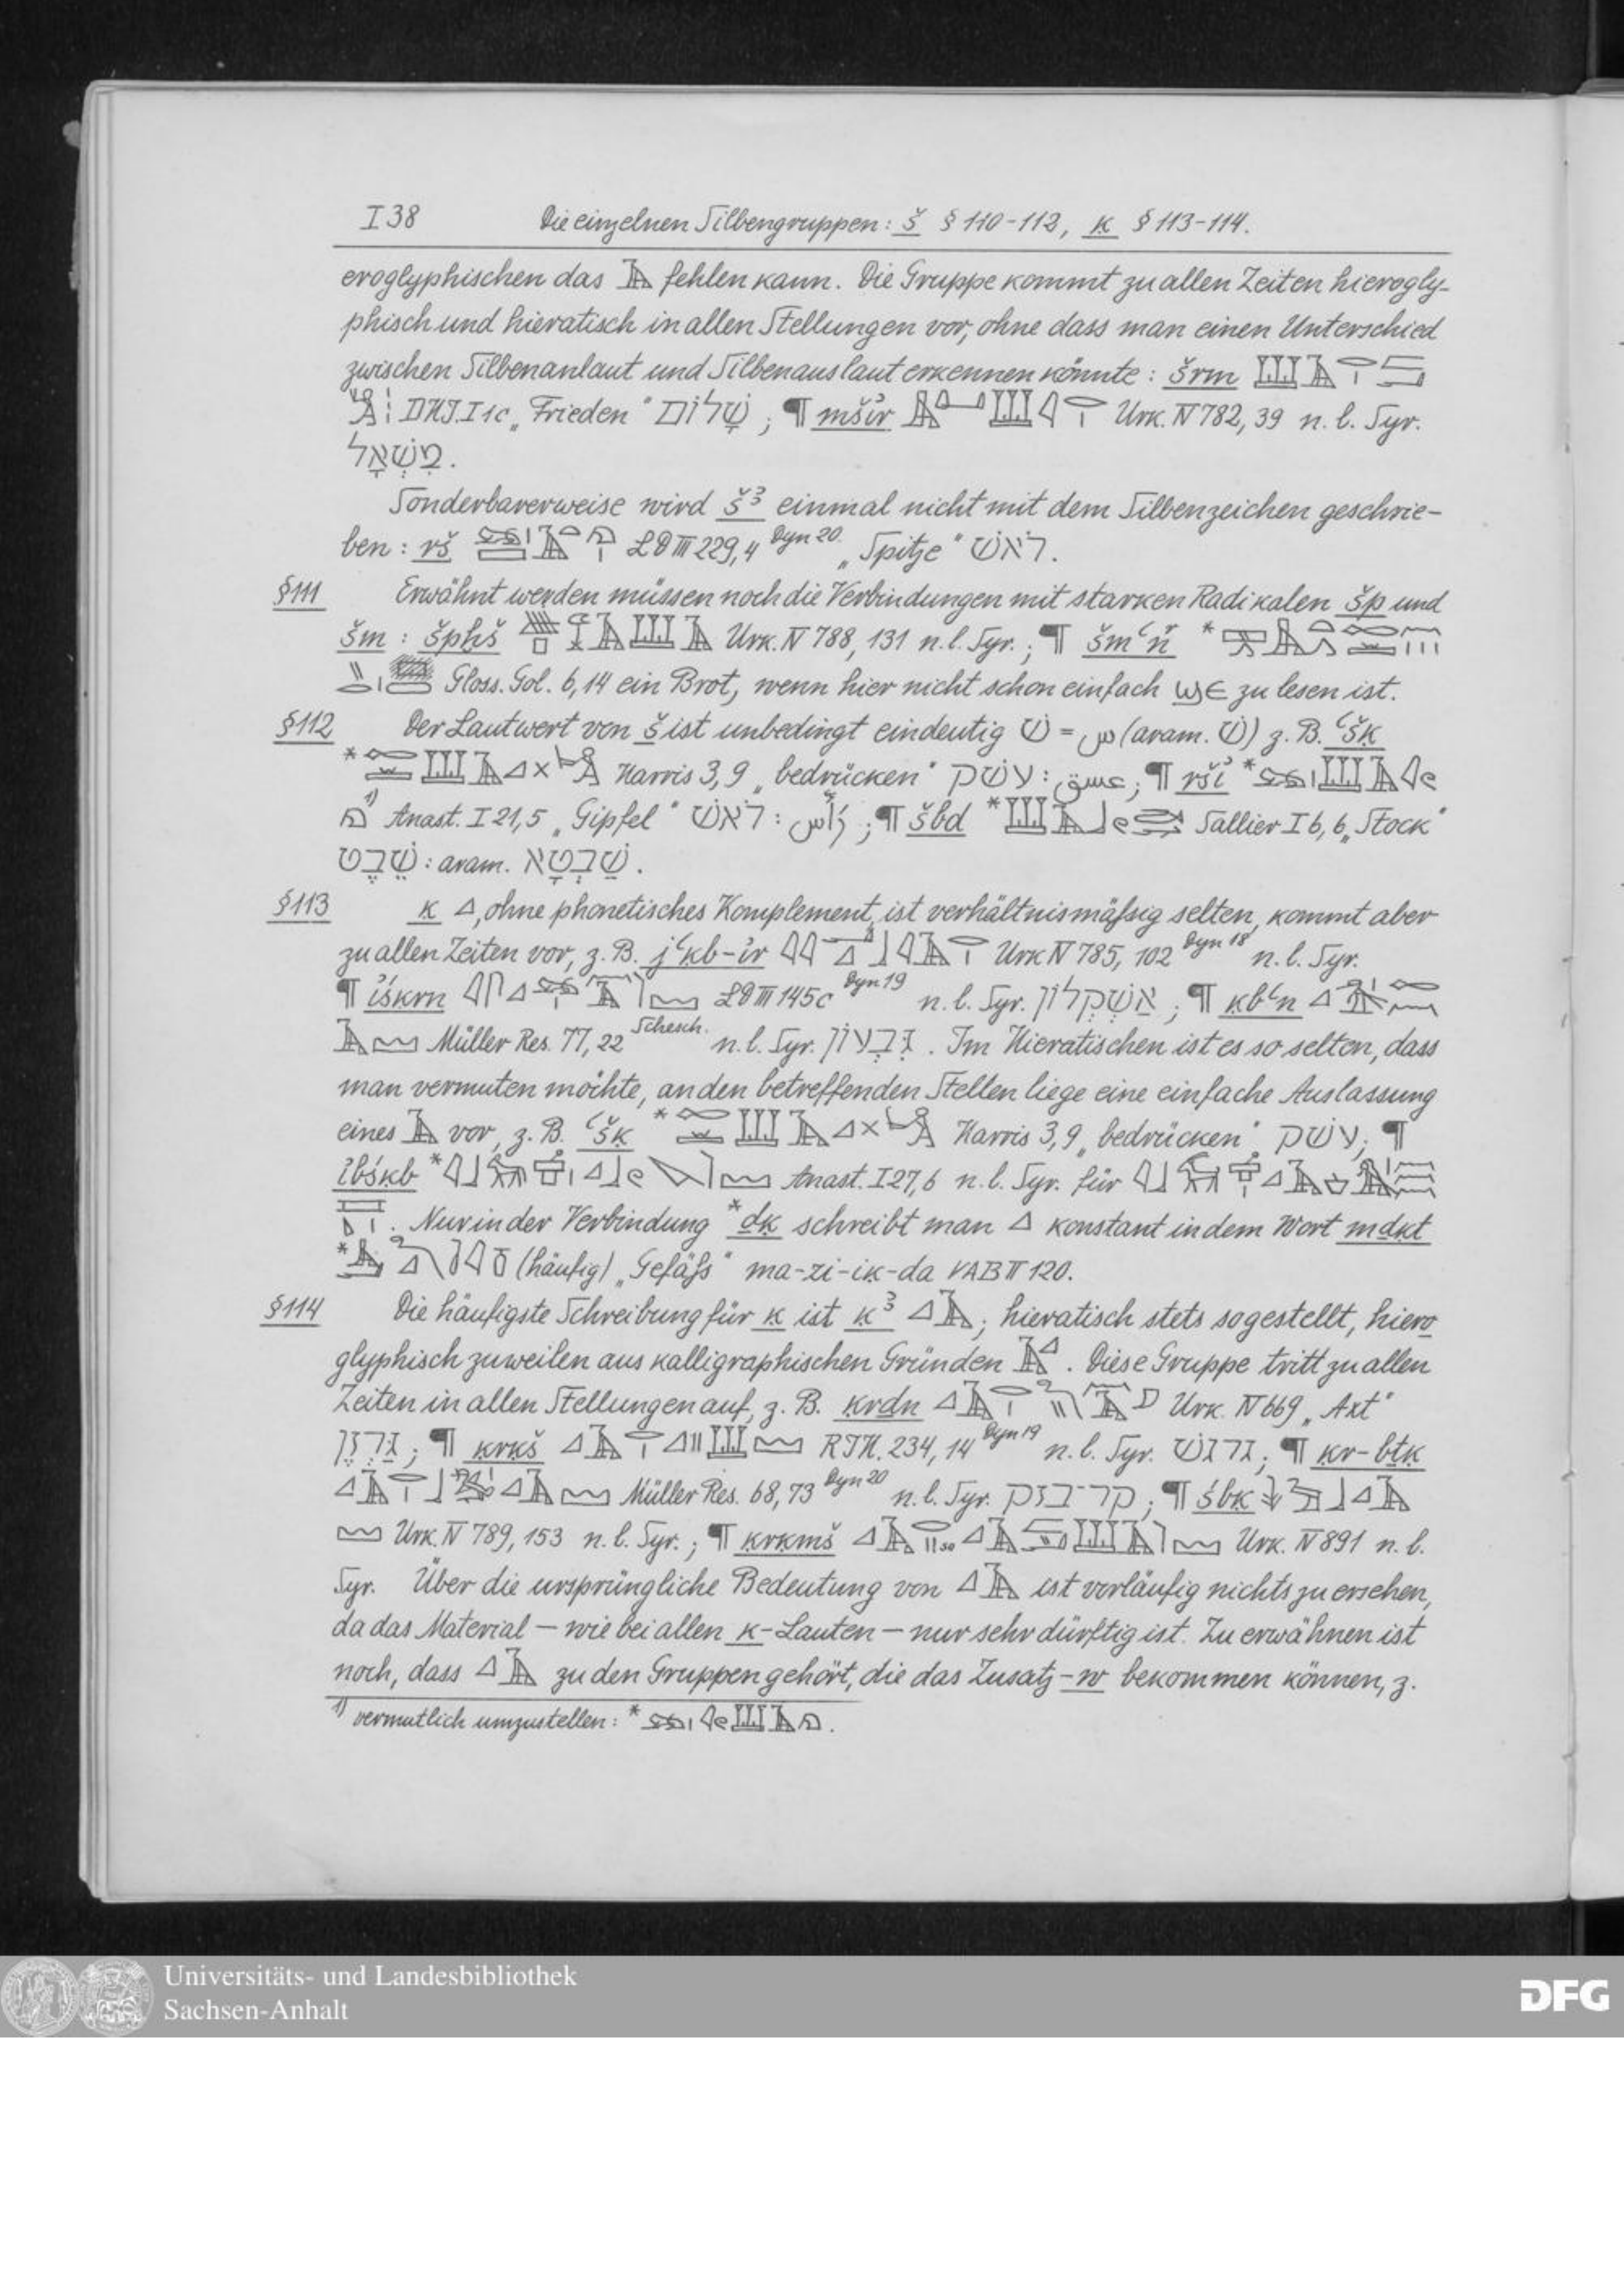 I 38 Die einzelnen Silbengruppen: š § 110-112, ḳ § 113-114.
eroglyphischen das 𓄿 fehlen kann. Die Gruppe kommt zu allen Zeiten hierogly-
phisch und hieratisch in allen Stellungen vor, ohne dass man einen Unterschied
zwischen Silbenanlaut und Silbenauslaut erkennen könnte: šrm
DHJ. I 1c „Frieden“ שָׁלוֹם ; ¶ mšỉr Urk. IV 782, 39 n. l. Syr.
מִשְׁאָל.
Sonderbarerweise wird šꜣ einmal nicht mit dem Silbenzeichen geschrie-
ben: rš LD III 229,4 Dyn 20. „Spitze“ ראשׁ.
§111 Erwähnt werden müssen noch die Verbindungen mit starken Radikalen šp und
šm: Urk. IV 788, 131 n. l. Syr.; ¶
Gloss. Gol. 6,14 ein Brot, wenn hier nicht schon einfach ϣϵ zu lesen ist.
§112 Der Lautwert von š ist unbedingt eindeutig שׁ = س (aram. שׁ) z. B. ꜥšḳ
* Harris 3,9 „bedrücken“ עשׁק : عسق; ¶ ršỉ *
1) Anast. I 21,5 „Gipfel“ ראשׁ : رَأْس ; ¶ šbd * Sallier I 6,6 „Stock“
שֵׁבֶט : aram. שַׁבְטָא.
§113 ḳ 𓈎, ohne phonetisches Komplement, ist verhältnismäßig selten, kommt aber
zu allen Zeiten vor, z. B. jꜥḳb-ỉr Urk IV 785, 102 Dyn 18 n. l. Syr.
¶ ỉśḳrn LD III 145c Dyn 19 n. l. Syr. אַשְׁקְלוֹן ; ¶ ḳbꜥn
Müller Res. 77, 22 Schesch. n. l. Syr. גִּבְעוֹן. Im Hieratischen ist es so selten, dass
man vermuten möchte, an den betreffenden Stellen liege eine einfache Auslassung
eines 𓄿 vor, z. B. ꜥšḳ * Harris 3,9 „bedrücken“ עשׁק; ¶
ỉbśḳb * Anast. I 27,6 n. l. Syr. für
. Nur in der Verbindung *ḏḳ schreibt man 𓈎 konstant in dem Wort mḏḳt
* (häufig) „Gefäß“ ma-zi-iḳ-da VAB II 120.
§114 Die häufigste Schreibung für ḳ ist ḳꜣ 𓈎𓄿; hieratisch stets so gestellt, hiero
glyphisch zuweilen aus kalligraphischen Gründen 𓄿𓈎. Diese Gruppe tritt zu allen
Zeiten in allen Stellungen auf, z. B. ḳrḏn Urk. IV 669 „Axt“
גַּרְזֶן; ¶ ḳrḳš RJH. 234, 14 Dyn 19 n. l. Syr. גרגשׁ; ¶ ḳr-bṯḳ
Müller Res. 68, 73 Dyn 20 n. l. Syr. קר־בזק; ¶ śbḳ
Urk. IV 789, 153 n. l. Syr.; ¶ ḳrḳmš Urk. IV 891 n. l.
Syr. Über die ursprüngliche Bedeutung von 𓈎𓄿 ist vorläufig nichts zu ersehen,
da das Material — wie bei allen ḳ-Lauten — nur sehr dürftig ist. Zu erwähnen ist
noch, dass 𓈎𓄿 zu den Gruppen gehört, die das Zusatz-w bekommen können, z.
1) vermutlich umzustellen: *
Universitäts- und Landesbibliothek
Sachsen-Anhalt
DFG